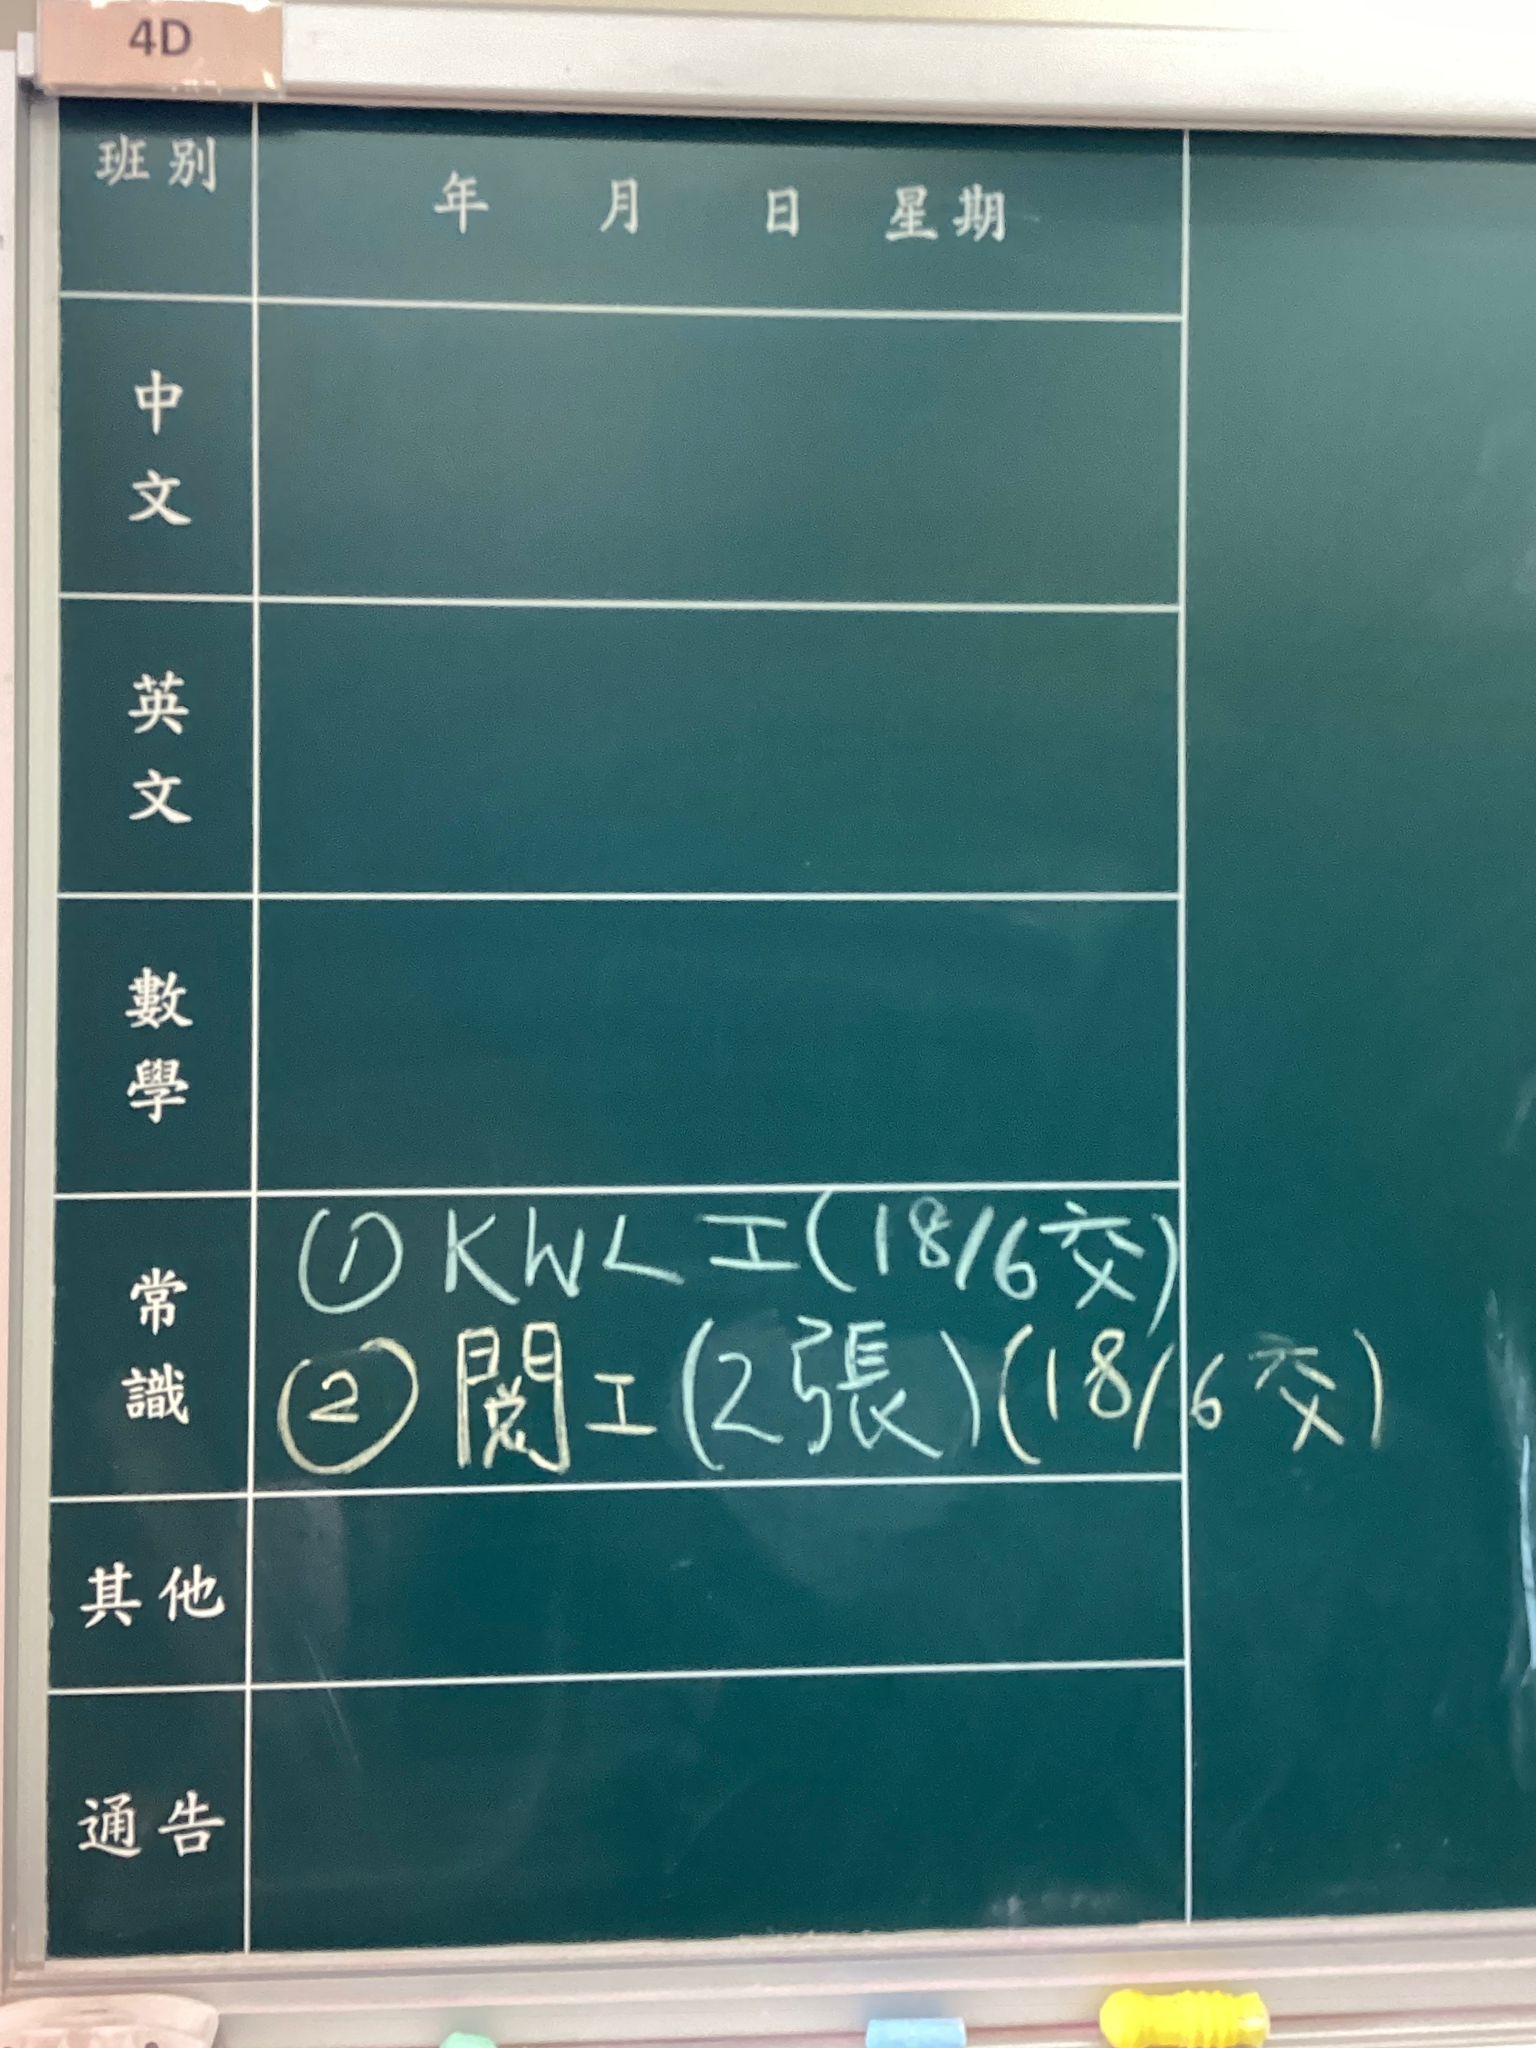 4D
班別
年 月 日 星期
中文
英文
數學
常識
① KWL 工(18/6交)
② 閱工(2張)(18/6交)
其他
通告